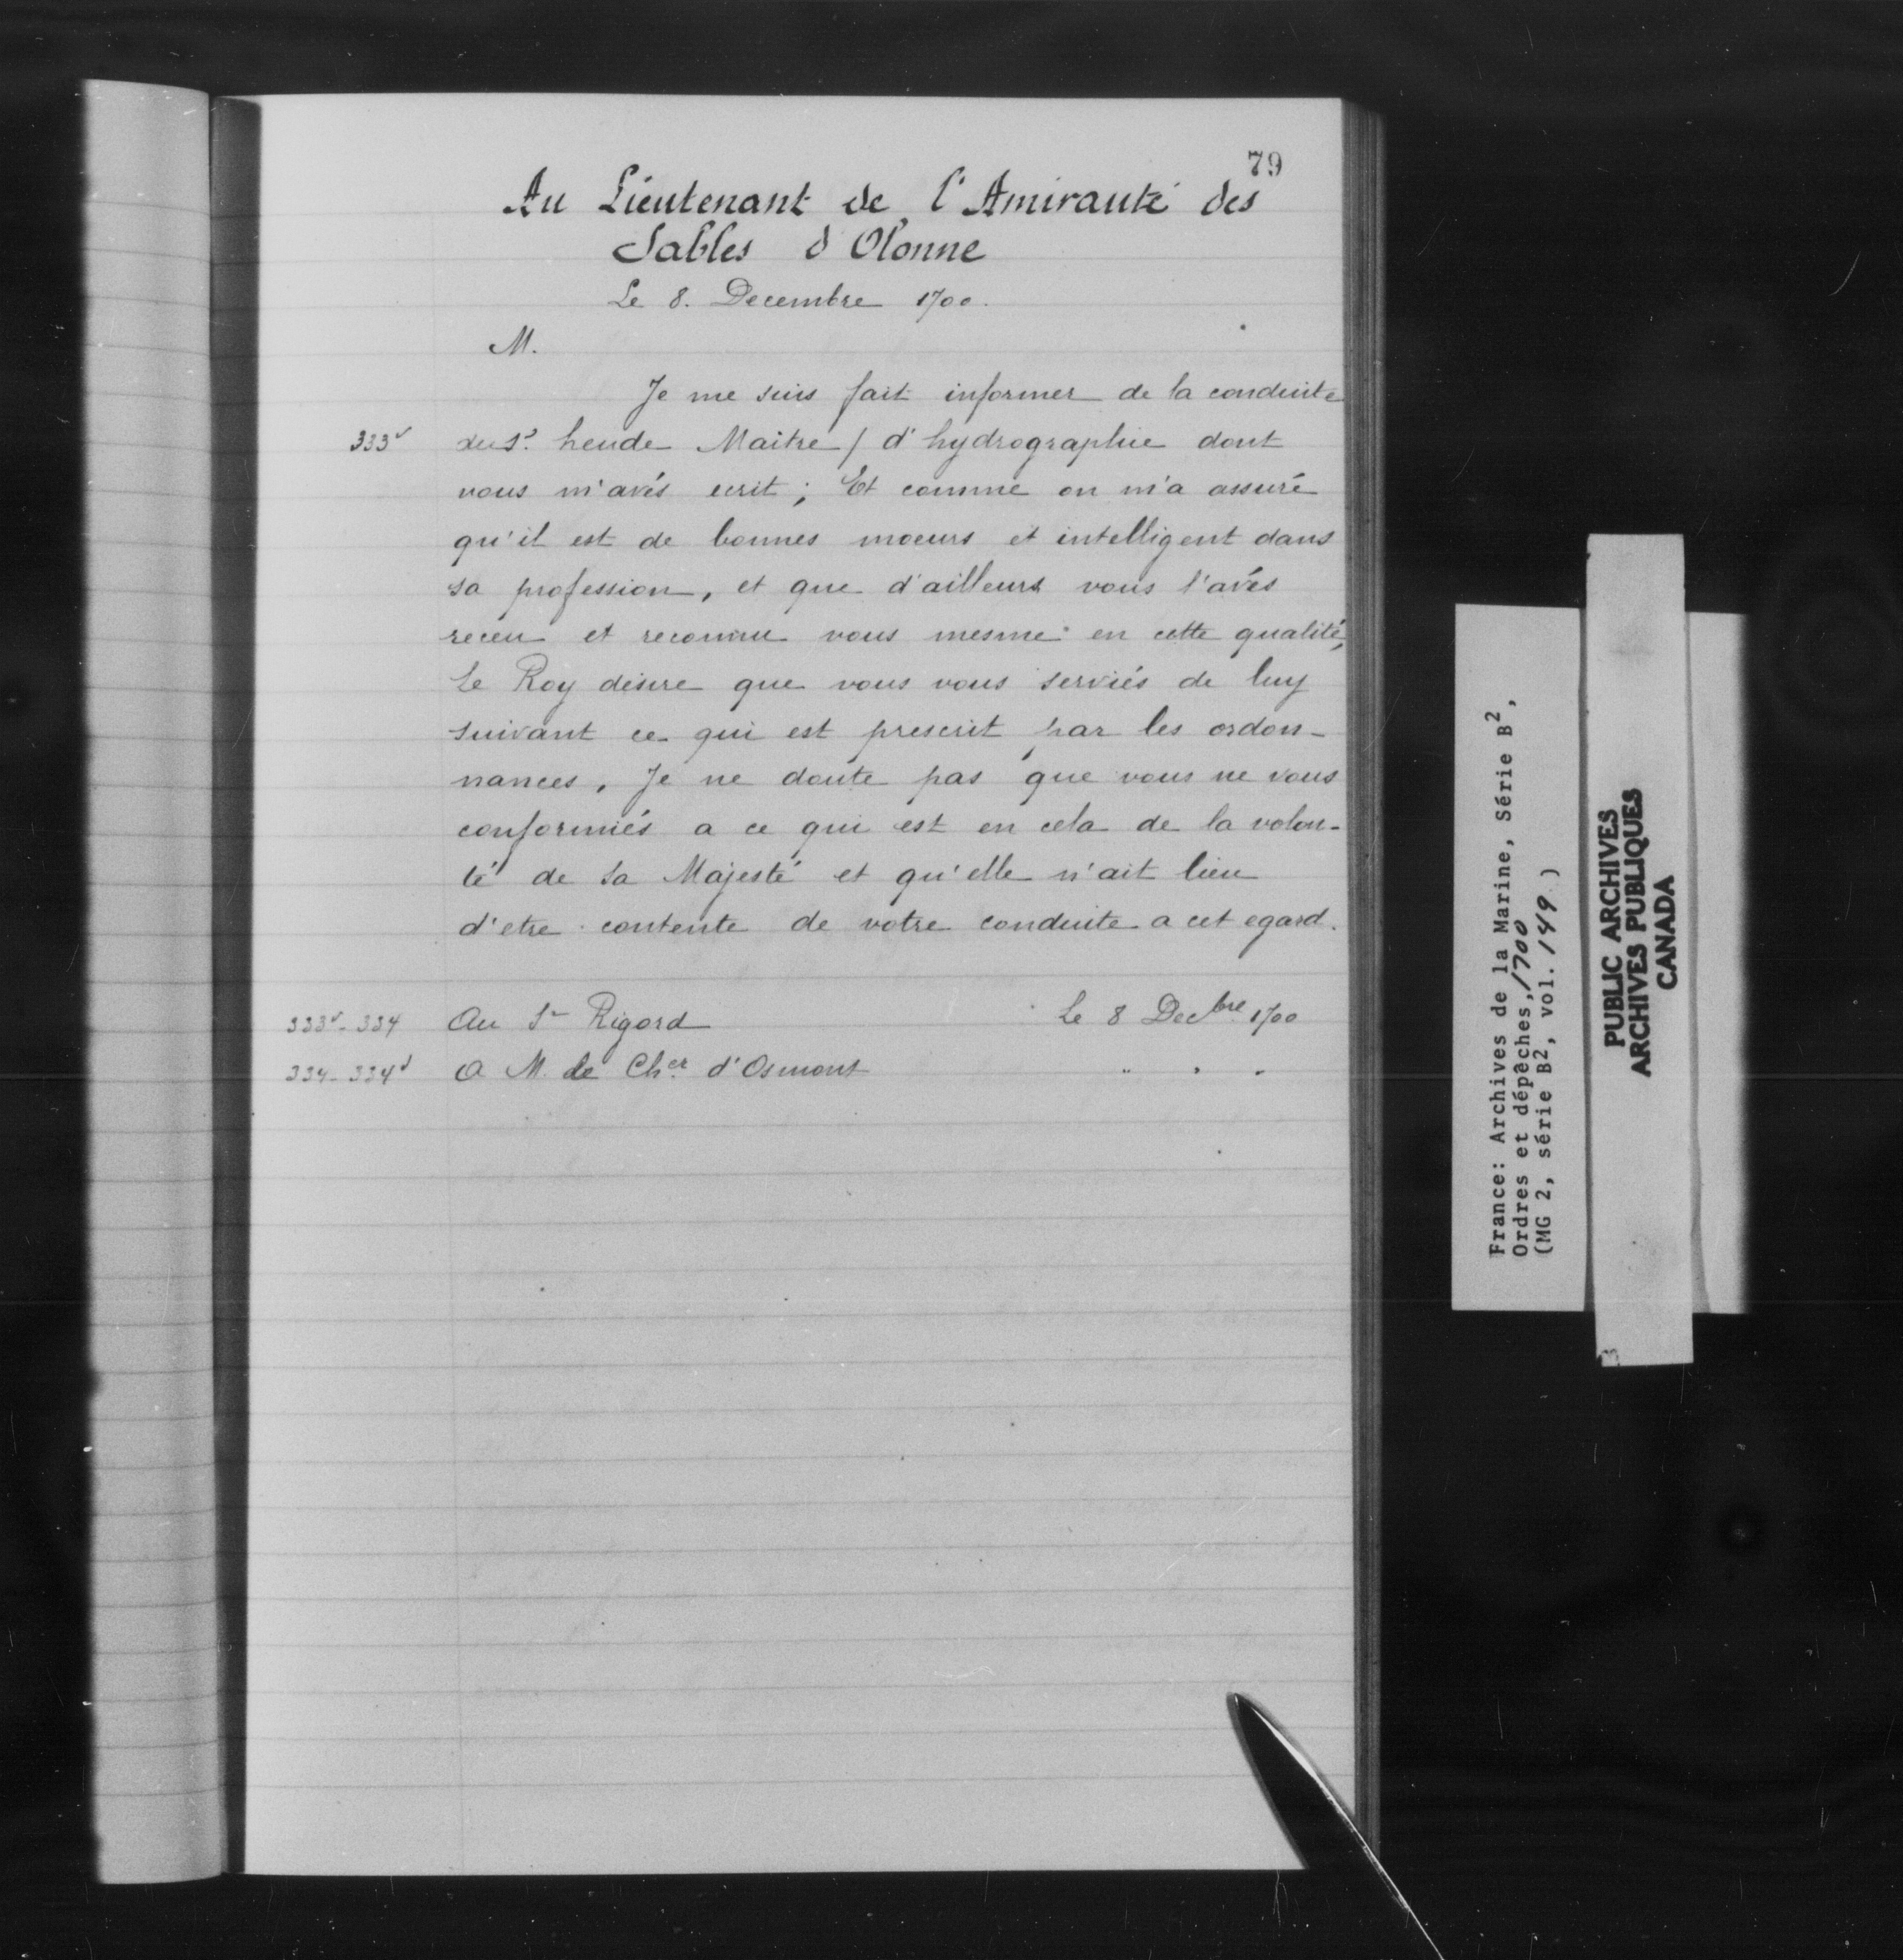 79
Au Lieutenant de l'Amirauté des
Sables d'Olonne
Le 8. Decembre 1700.
M.
Je me suis fait informer de la conduite
333v du Sr. heude Maitre / d'hydrographie dont
vous m'avés ecrit ; Et comme on m'a assuré
qu'il est de bonnes moeurs et intelligent dans
sa profession, et que d'ailleurs vous l'avés
receu et reconnu vous mesme en cette qualité,
Le Roy désire que vous vous serviés de luy
suivant ce qui est prescrit par les ordon-
nances, Je ne doute pas que vous ne vous
conformiés a ce qui est en cela de la volon-
té de Sa Majesté et qu'elle n'ait lieu
d'etre contente de votre conduite a cet egard.
333v - 334 Au Sr Rigord Le 8 Decbre 1700
334 - 334v A M. le Cher d'Osmont " " "
France: Archives de la Marine, Série B2,
Ordres et dépêches, 1700
(MG 2, série B2, vol. 149 )
PUBLIC ARCHIVES
ARCHIVES PUBLIQUES
CANADA